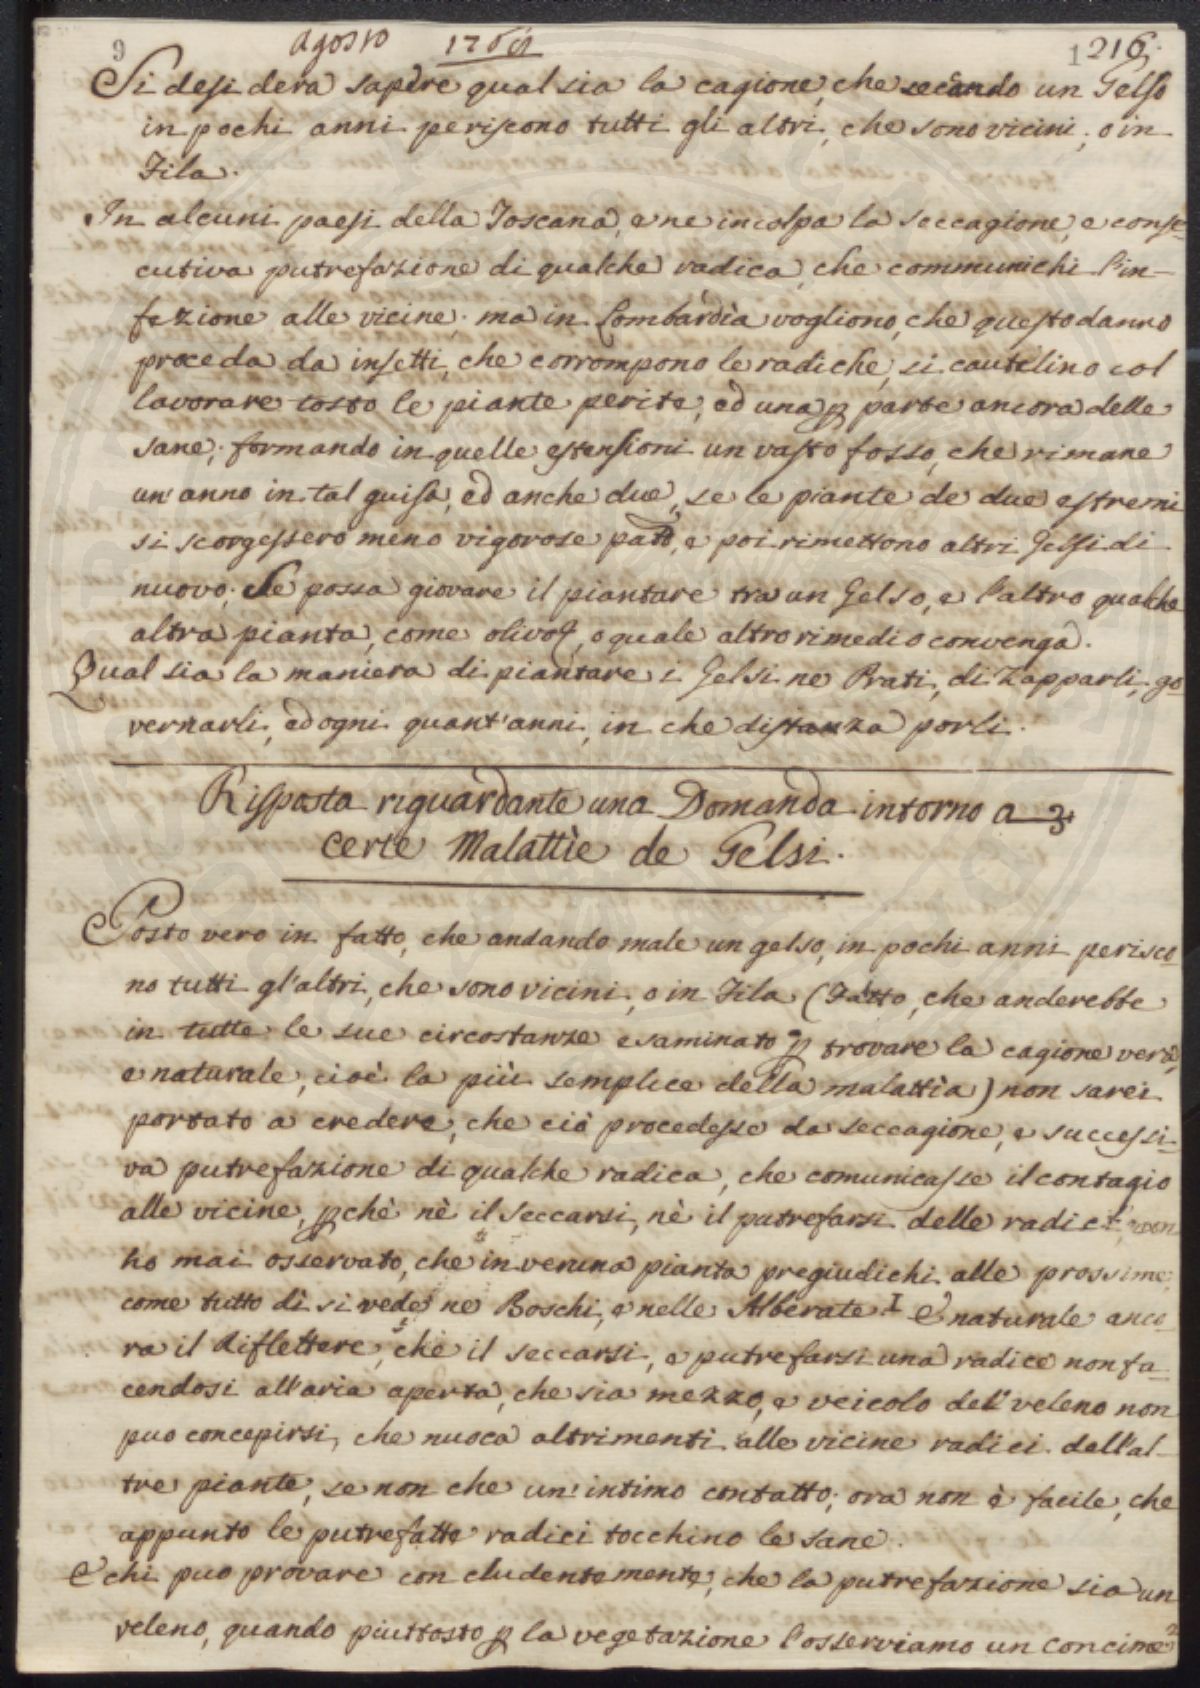 9 agosto 1216.
Si desidera sapere qual sia la cagione, che secando un Gelso
in pochi anni periscono tutti gli altri, che sono vicini, o in
Fila.
In alcuni paesi della Toscana, e ne incolpa la seccagione, e conse-
cutiva putrefazione di qualche radica, che communichi l'in-
fezione alle vicine. ma in Lombardia vogliono, che questo danno
proceda da insetti, che corrompono le radiche, si cautelino col
lavorare tosto le piante perite, ed una parte ancora delle
sane, formando in quelle estensioni un vasto fosso, che rimane
un'anno in tal guisa, ed anche due, se le piante de due estremi
si scorgessero meno vigorose, e poi rimettono altri Gelsi di
nuovo. Se possa giovare il piantare tra un Gelso, e l'altro qualche
altra pianta, come olivo, o quale altro rimedio convenga.
Qual sia la maniera di piantare i Gelsi ne Prati, di Zapparli, go-
vernarli, ed ogni quant'anni, in che distanza porli.
Risposta riguardante una Domanda intorno a
certe Malattie de Gelsi.
Posto vero in fatto, che andando male un gelso, in pochi anni perisco-
no tutti gl'altri, che sono vicini, o in Fila (Fatto, che anderebbe
in tutte le sue circostanze esaminato p trovare la cagione vera,
e naturale, cioè la più semplice della malattia) non sarei
portato a credere, che ciò procedesse da seccagione, e successi-
va putrefazione di qualche radica, che comunicasse il contagio
alle vicine, pchè nè il seccarsi, nè il putrefarsi delle radici non
ho mai osservato, che in veruna pianta pregiudichi alle prossime
come tutto dì si vede ne Boschi, e nelle Alberate. È naturale anco-
ra il riflettere, che il seccarsi, e putrefarsi una radice non fa-
cendosi all'aria aperta, che sia mezzo, e veicolo del veleno non
puo concepirsi, che nuoca altrimenti alle vicine radici dell'al-
tre piante, se non che un'intimo contatto; ora non è facile, che
appunto le putrefatte radici tocchino le sane.
E chi puo provare concludentemente, che la putrefazione sia un
veleno, quando piuttosto p la vegetazione l'osserviamo un concime